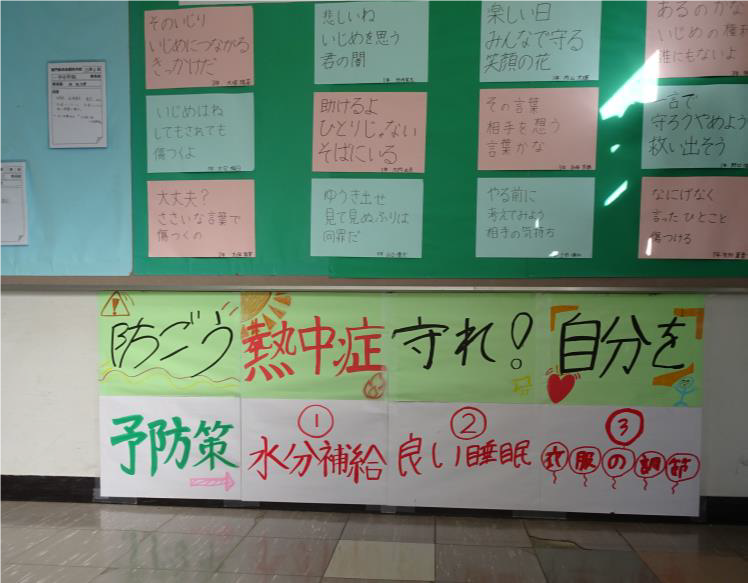 そのいじり
いじめにつながる
きっかけだ
悲しいね
いじめを思う
君の闇
楽しい日
みんなで守る
笑顔の花
あるのかな
いじめの権利
誰にもないよ
いじめはね
してもされても
傷つくよ
助けるよ
ひとりじゃない
そばにいる
その言葉
相手を想う
言葉かな
一言で
守ろうやめよう
救い出そう
大丈夫?
ささいな言葉で
傷つくの
ゆうき出せ
見て見ぬふりは
同罪だ
やる前に
考えてみよう
相手の気持ち
なにげなく
言ったひとこと
傷つける
防ごう 熱中症 守れ! 「自分を」
予防策 ①水分補給 ②良い睡眠 ③衣服の調節